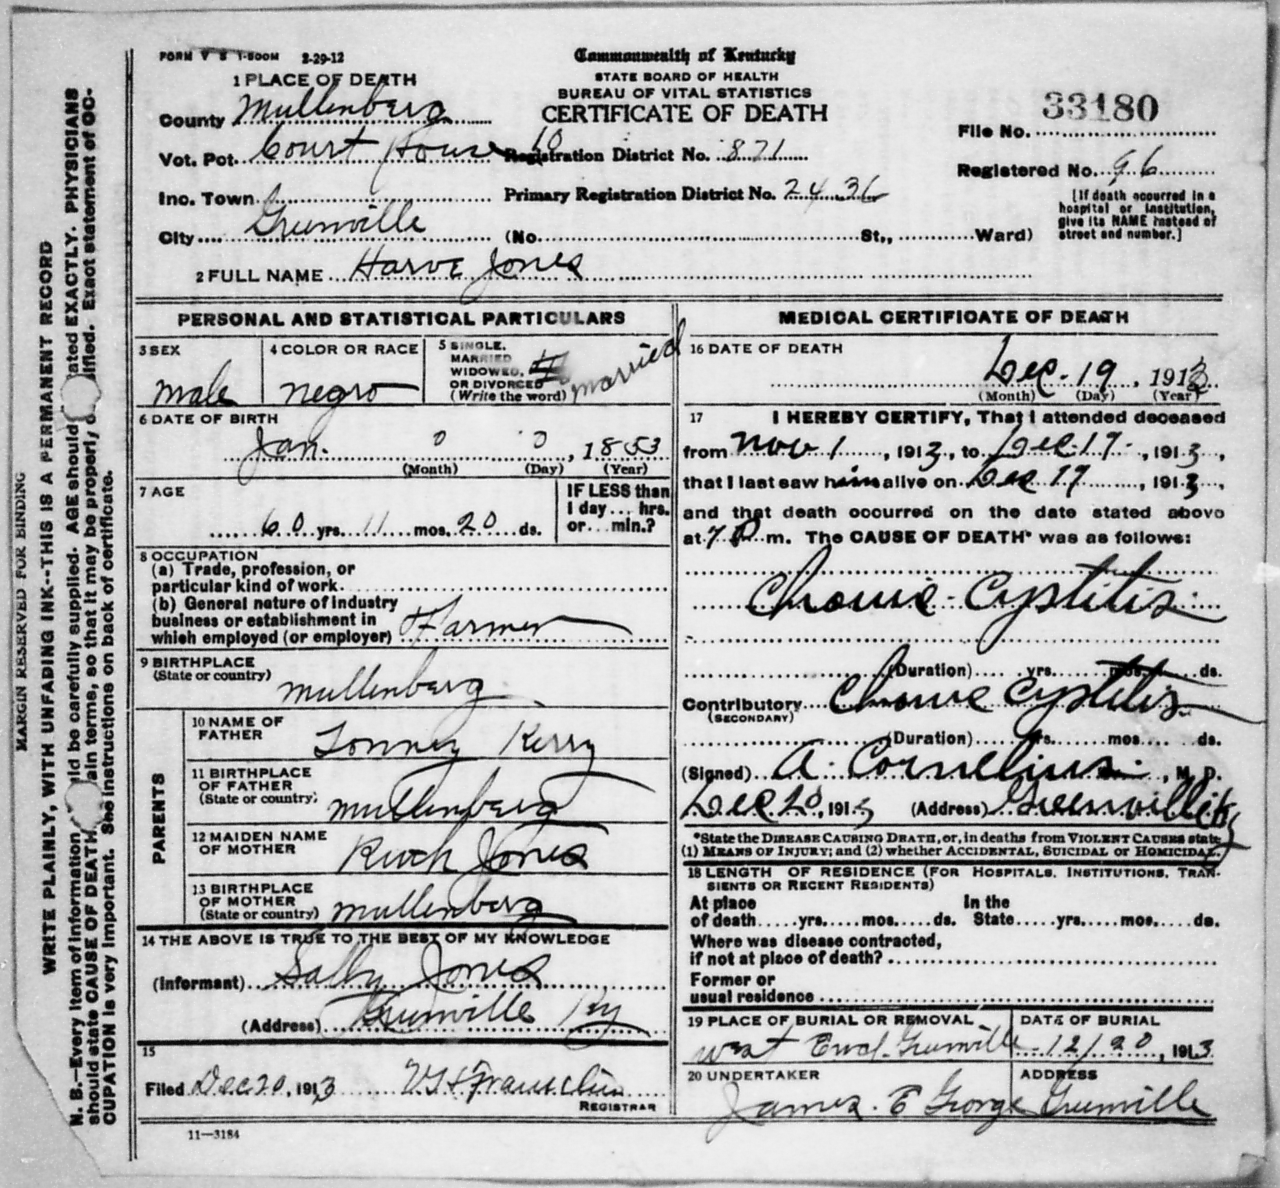 FORM V S 1-500M 2-29-12
Commonwealth of Kentucky
STATE BOARD OF HEALTH
BUREAU OF VITAL STATISTICS
CERTIFICATE OF DEATH
1 PLACE OF DEATH
County Mullenberg
Vot. Pct. Court House 10
Inc. Town
City Greenville
Registration District No. 871
Primary Registration District No. 2436
(No. St., Ward)
File No. 33180
Registered No. 96
[If death occurred in a
hospital or institution,
give its NAME instead of
street and number.]
2 FULL NAME Harve Jones
PERSONAL AND STATISTICAL PARTICULARS
3 SEX
male
4 COLOR OR RACE
negro
5 SINGLE,
MARRIED
WIDOWED,
OR DIVORCED
(Write the word)
married
6 DATE OF BIRTH
Jan. 0 0, 1853
(Month) (Day) (Year)
7 AGE
60 yrs. 11 mos. 20 ds.
IF LESS than
1 day... hrs.
or... min.?
8 OCCUPATION
(a) Trade, profession, or
particular kind of work
(b) General nature of industry
business or establishment in
which employed (or employer) Farmer
9 BIRTHPLACE
(State or country) mullenberg
PARENTS
10 NAME OF
FATHER Lonney Kerry
11 BIRTHPLACE
OF FATHER
(State or country) mullenberg
12 MAIDEN NAME
OF MOTHER Jones
13 BIRTHPLACE
OF MOTHER
(State or country) mullenberg
14 THE ABOVE IS TRUE TO THE BEST OF MY KNOWLEDGE
(Informant) Sally Jones
(Address) Greenville Ky
15
Filed Dec 20, 1913
REGISTRAR
11—3184
MEDICAL CERTIFICATE OF DEATH
16 DATE OF DEATH
Dec. 19, 1913
(Month) (Day) (Year)
17 I HEREBY CERTIFY, That I attended deceased
from Nov 1, 1913, to Dec. 17, 1913,
that I last saw him alive on Dec 17, 1913,
and that death occurred on the date stated above
at 7 P m. The CAUSE OF DEATH* was as follows:
Chronic Cystitis
(Duration) yrs. mos. ds.
Contributory Chronic Cystitis
(SECONDARY)
(Duration) yrs. mos. ds.
(Signed) A. Cornelius, M. D.
Dec 20, 1913 (Address) Greenville Ky
*State the DISEASE CAUSING DEATH, or, in deaths from VIOLENT CAUSES state
(1) MEANS OF INJURY; and (2) whether ACCIDENTAL, SUICIDAL OR HOMICIDAL.
18 LENGTH OF RESIDENCE (FOR HOSPITALS, INSTITUTIONS, TRAN-
SIENTS OR RECENT RESIDENTS)
At place In the
of death yrs. mos. ds. State yrs. mos. ds.
Where was disease contracted,
if not at place of death?
Former or
usual residence
19 PLACE OF BURIAL OR REMOVAL
West End Greenville
DATE OF BURIAL
12/20, 1913
20 UNDERTAKER
James. E George
ADDRESS
Greenville
MARGIN RESERVED FOR BINDING
WRITE PLAINLY, WITH UNFADING INK--THIS IS A PERMANENT RECORD
N. B.—Every item of information ld be carefully supplied. AGE should ated EXACTLY. PHYSICIANS
should state CAUSE OF DEATH ain terms, so that it may be properly c ified. Exact statement of OC-
CUPATION is very important. See instructions on back of certificate.